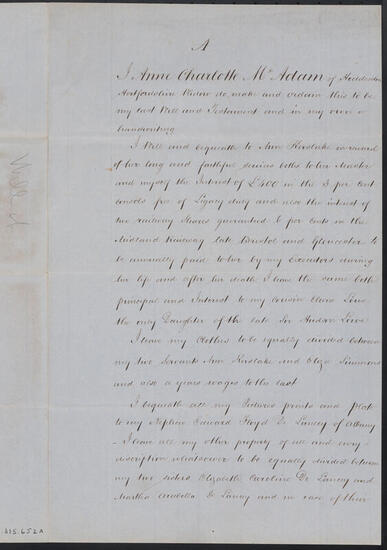 A
I Anne Charlotte McAdam of Hoddesdon
Hertfordshire Widow do make and ordain this to be
my last Will and Testament and in my own
handwriting
I Will and bequeath to Ann Kerslake in reward
of her long and faithful services both to her Master
and myself the Interest of £400 in the 3 per Cent
consols free of Legacy duty and also the interest of
two railway Shares guaranteed 6 per Cents in the
Midland Railway late Bristol and Gloucester to
be annually paid to her by my Executors during
her life and after her death I leave the same both
principal and Interest to my cousin Clara
the only Daughter of the late Sir
I leave my Clothes to be equally divided between
my two Servants Ann Kerslake and Eliza Simmons
and also a years wages to the last
I bequeath all my Pictures prints and plate
to my Nephew Edward Floyd De Lancey of Albany
- I leave all my other property of all and every
discription whatsoever to be equally divided between
my two sisters Elizabeth Caroline De Lancey and
Martha Arabella De Lancey and in case of their
415.652A